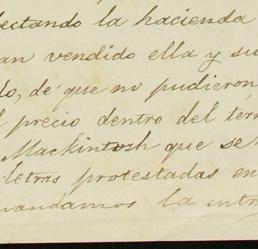 ectando la hacienda
an vendido ella y su
do, de que no pudieron
el precio dentro del tér
Mackintosh que se
letras protestadas en
uandamos la entr